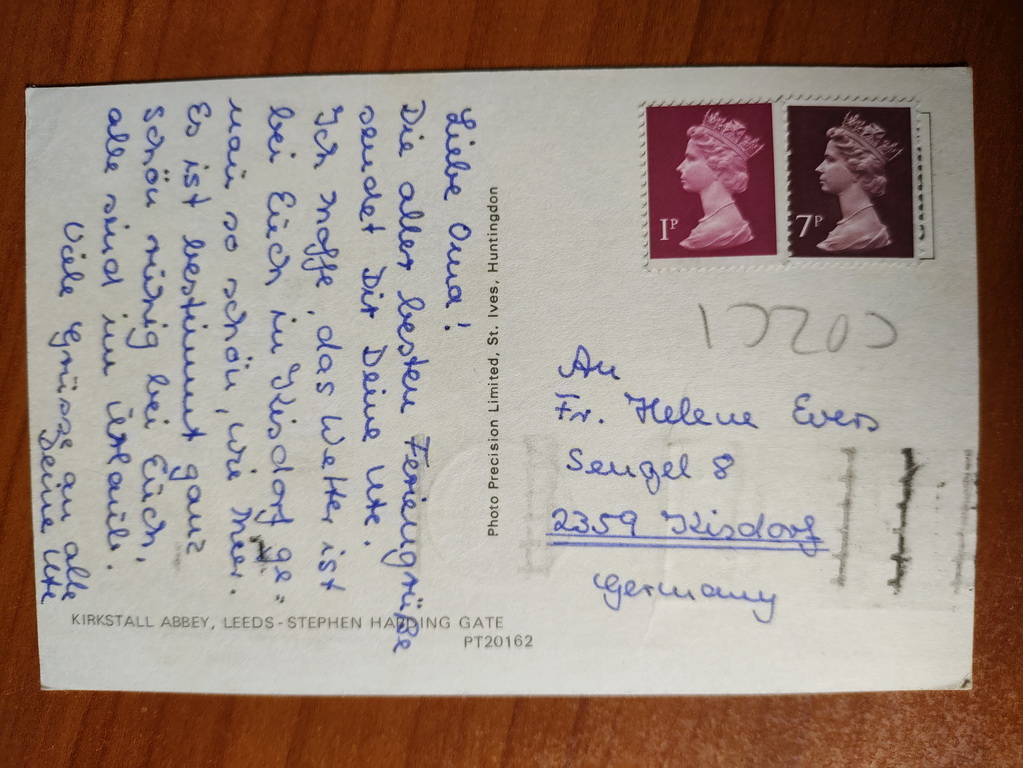 Liebe Oma!
Die aller besten Feriengrüße
sendet Dir Deine Ute.
Ich hoffe, das Wetter ist
bei Euch in Kisdorf ge=
nau so schön, wie hier.
Es ist bestimmt ganz
schön ruhig bei Euch,
alle sind im Urlaub.
Viele Grüsse an alle
Deine Ute
Photo Precision Limited, St. Ives, Huntingdon
KIRKSTALL ABBEY, LEEDS - STEPHEN HARDING GATE
PT20162
1P
7P
An
Fr. Helene Evers
Sengel 8
2359 Kisdorf
Germany